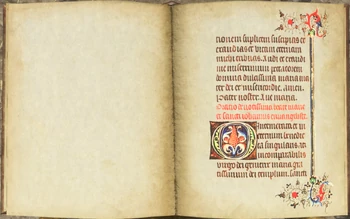 nonem suplicem suscipias et
exaudias et vitam eternam
michi tribuas. Audi et exaudi
me
domina dulcissima maria ma
ter dei et misericordie. Amen.
Pater noster. Aue maria.
Oratio deuotissima beate marie
et sancti iohannis euangeliste.
O intemerata et in
eternum benedic
ta singularis at
incomparabilis
virgo dei genitrix maria gra
tissimum dei templum. Sancti